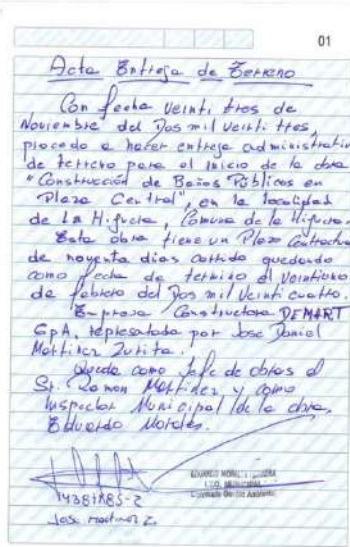 01
Acta Entrega de Terreno
Con fecha Veinti tres de
Noviembre del Dos mil Veinti tres,
procedo a hacer entrega administrativa
de terreno para el inicio de la obra
"Construcción de Baños Públicos en
Plaza Central", en la localidad
de La Higuera, Comuna de la Higuera.
Esta obra tiene un Plazo Contractual
de noventa días corrido quedando
como fecha de termino el Veintiuno
de febrero del Dos mil Veinti cuatro.
Empresa Constructora DEMART
SpA, representada por Jose Daniel
Martinez Zurita.
Queda como Jefe de obras el
Sr. Ramon Martinez y como
Inspector Municipal de la obra,
Eduardo Morales.
EDUARDO
I.T.O. MUNICIPAL
14381885-2
Jose Martinez Z.